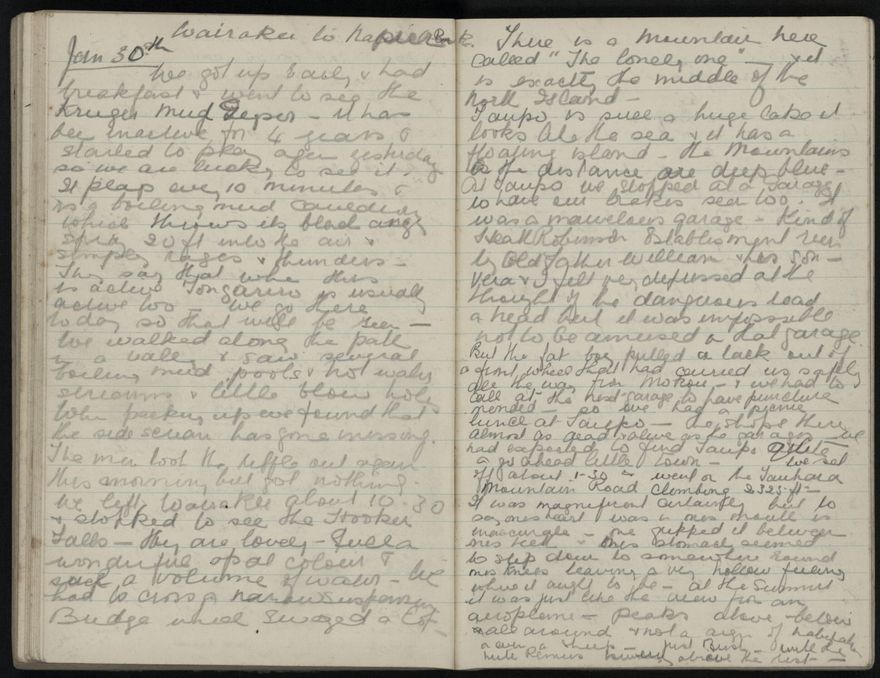 Wairakei to Napier
Jan 30th
We got up Early & had
breakfast & went to see the
Kruger Mud Geyser - it has
been inactive for 4 years &
started to play again yesterday
so we are lucky to see it.
It plays every 10 minutes &
is a boiling mud cauldron
which throws its black angry
20 ft into the air &
simply rages & thunders -
They say that when this
is active Tongariro is usually
active too - We go there
today so that will be seen -
We walked along the path
in a valley & saw several
boiling mud pools & hot water
streams & little blow holes
When packing up we found that
the side screen has gone missing.
The men took the rifle out again
this morning but got nothing.
We left Wairakei about 10.30
& stopped to see the Hooker
Falls - they are lovely - Such a
wonderful opal colour &
such a volume of water - We
had to cross a narrow suspension
Bridge which swayed a lot -
There is a mountain here
called "The lonely one" - & it
is exactly the middle of the
North Island -
Taupo is such a huge lake it
looks like the sea & it has a
floating island - the Mountains
in the distance are deep blue -
At Taupo we stopped at a garage
to have our brakes seen too. It
was a marvellous garage - Kind of
Heath Robinson Establishment run
by Old Father William & his son -
Vera & I felt very depressed at the
thought of the dangerous road
ahead but it was impossible
not to be amused at that garage.
But the fat boy pulled a tack out of
a front wheel that had carried us safely
all the way from - & we had to
call at the next garage to have puncture
mended - so we had a picnic
lunch at Taupo - the shops there
almost as dead & alive as the garages - we
had expected to find Taupo quite
a go ahead little town - We set
off about 1-30 & went on the Tauhara
Mountain Road climbing 2325 ft -
It was magnificent certainly but to
say ones heart was in ones mouth is
inaccurate - one gripped it between
ones teeth & ones stomach seemed
to slip down to somewhere round
ones knees leaving a very hollow feeling
where it ought to be - at the Summit
it was just like the view from an
aeroplane - peaks above - below
& all around & not a sign of habitation
or even a sheep - just Bush - with the
little above the rest -